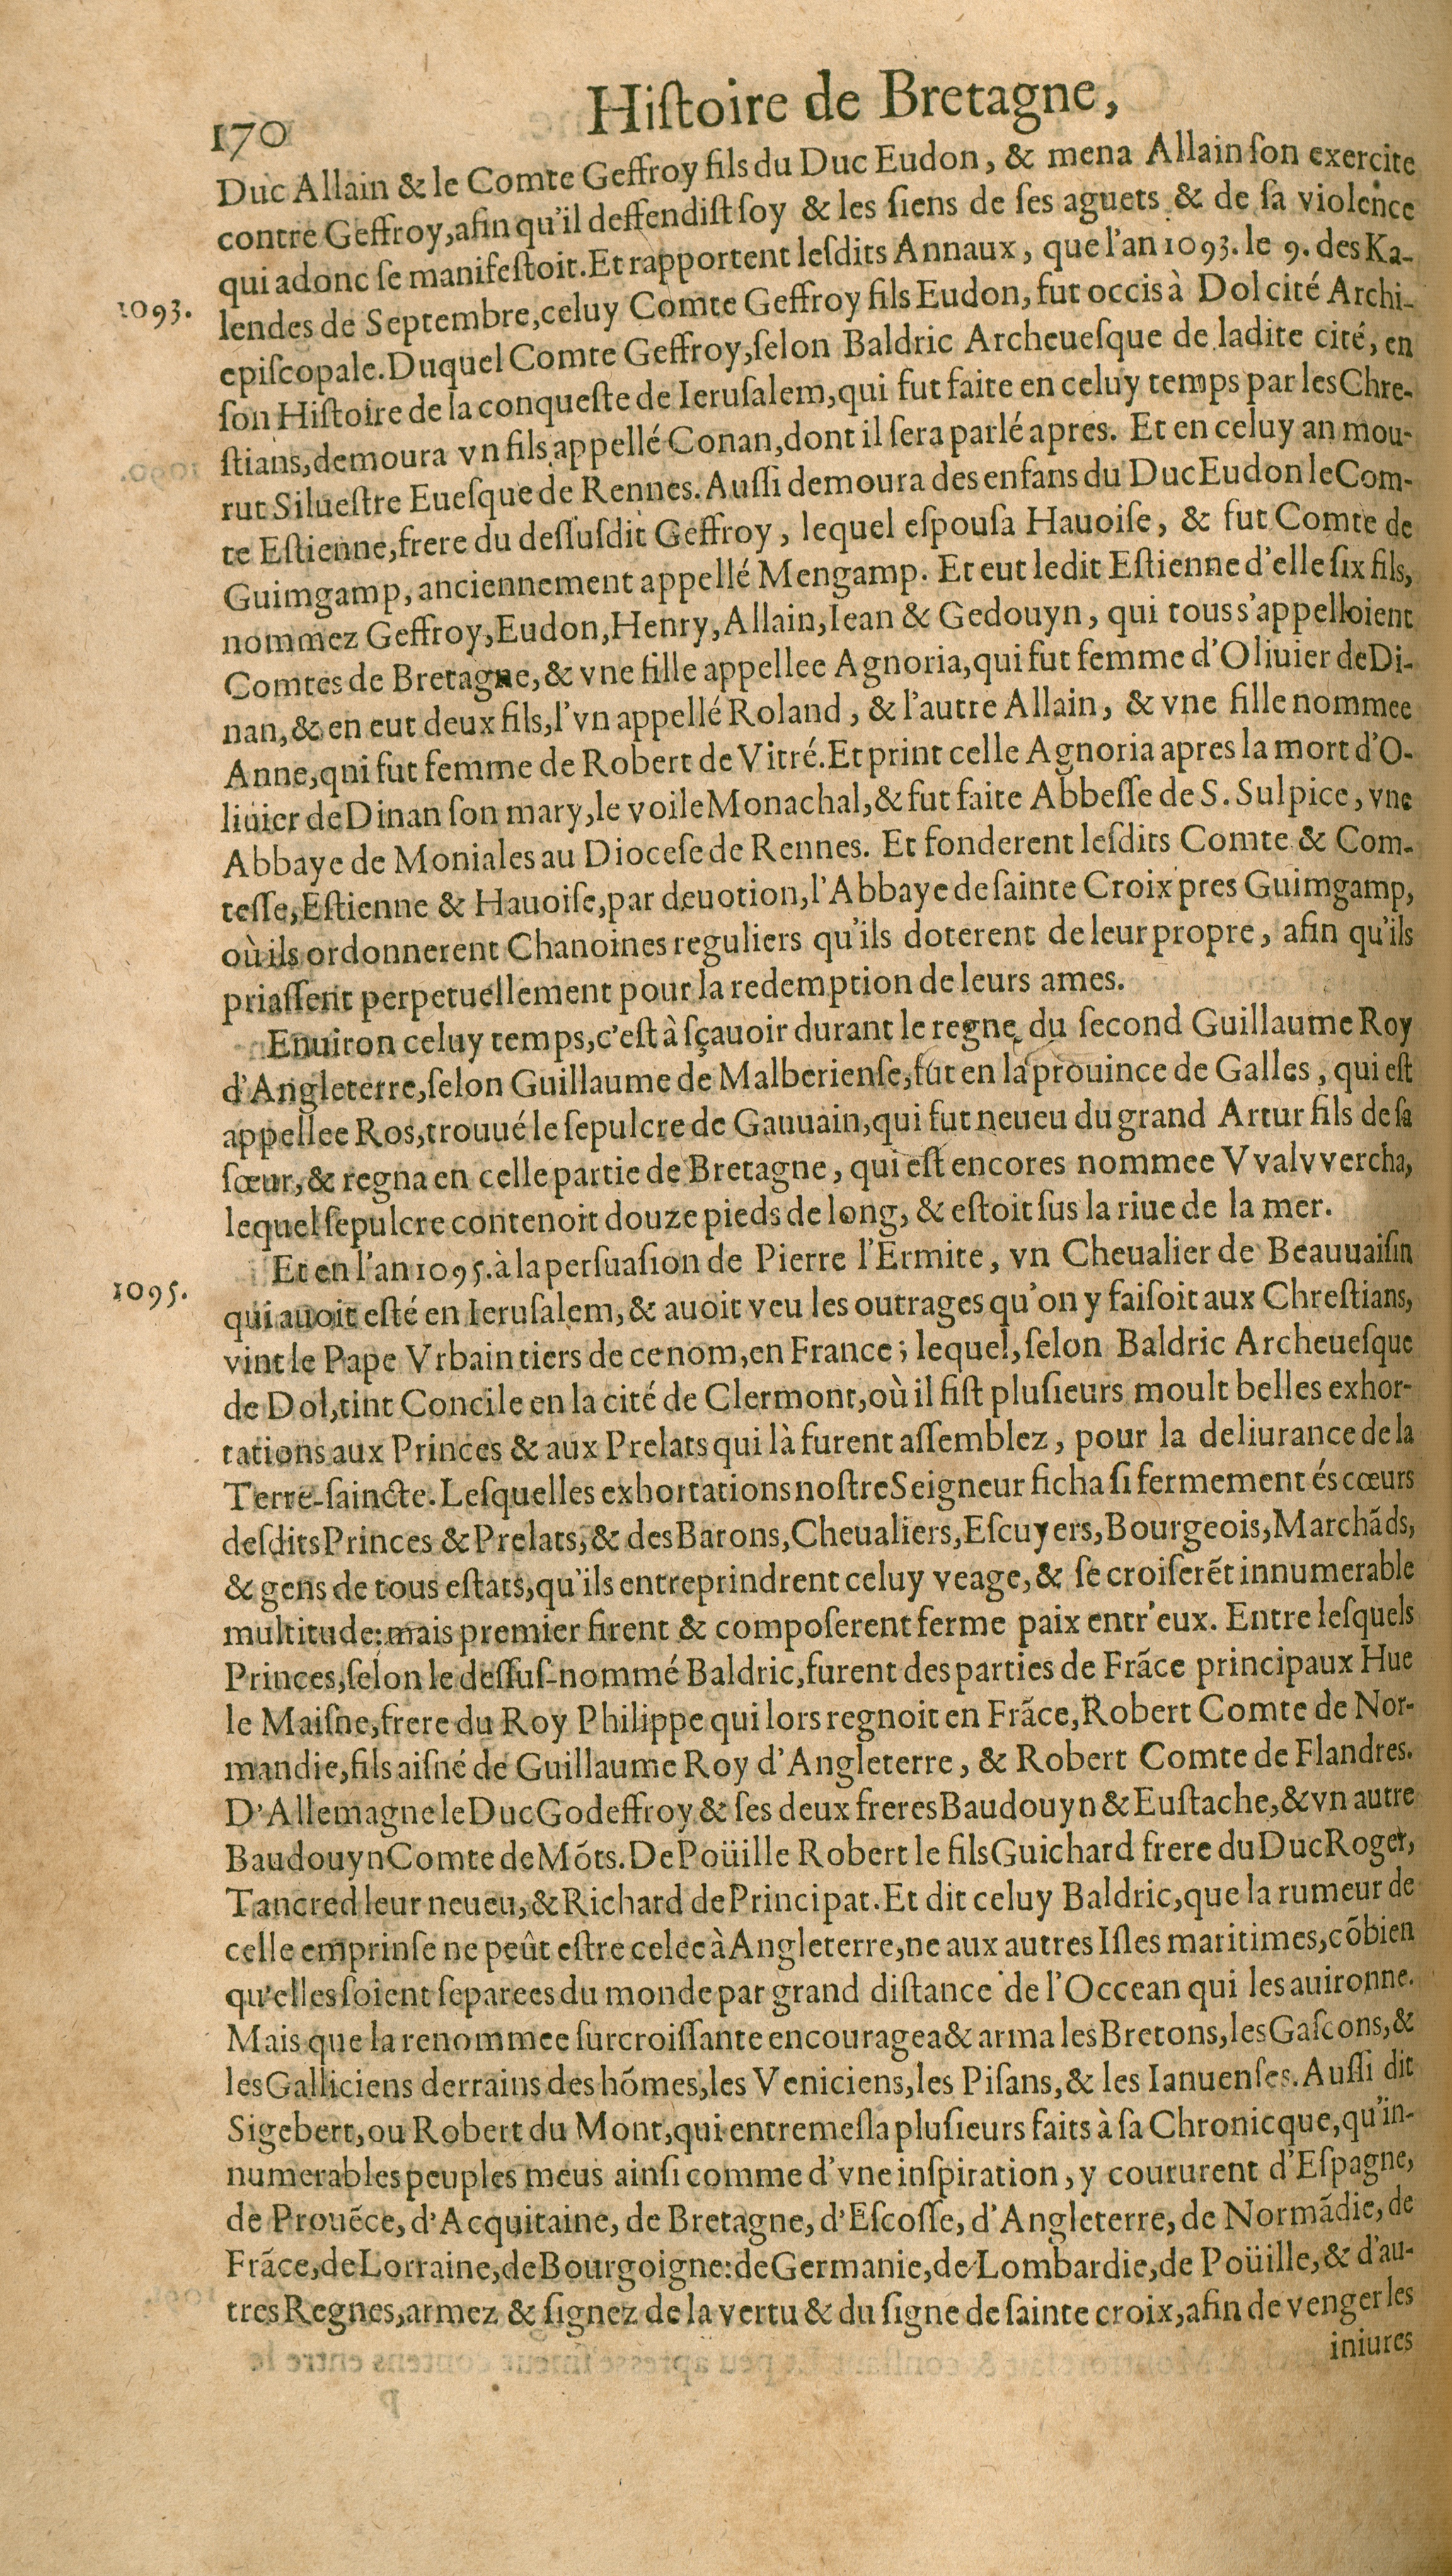 170
Hiſtoire de Bretagne,
Duc Allain & le Comte Geffroy fils du Duc Eudon, & mena Allain ſon exercite
contre Geffroy, afin qu'il deffendiſt ſoy & les ſiens de ſes aguets & de ſa violence
qui adonc ſe manifeſtoit. Et rapportent leſdits Annaux, que l'an 1093. le 9. des Ka-
1093.
lendes de Septembre, celuy Comte Geffroy fils Eudon, fut occis à Dol cité Archi-
epiſcopale. Duquel Comte Geffroy, ſelon Baldric Archeueſque de ladite cité, en
ſon Hiſtoire de la conqueſte de Ieruſalem, qui fut faite en celuy temps par les Chre-
ſtians, demoura vn fils appellé Conan, dont il ſera parlé apres. Et en celuy an mou-
rut Silueſtre Eueſque de Rennes. Auſſi demoura des enfans du Duc Eudon le Com-
te Eſtienne, frere du deſſuſdit Geffroy, lequel eſpouſa Hauoiſe, & fut Comte de
Guimgamp, anciennement appellé Mengamp. Et eut ledit Eſtienne d'elle ſix fils,
nommez Geffroy, Eudon, Henry, Allain, Iean & Gedouyn, qui tous s'appelloient
Comtes de Bretagne, & vne fille appellee Agnoria, qui fut femme d'Oliuier de Di-
nan, & en eut deux fils, l'vn appellé Roland, & l'autre Allain, & vne fille nommee
Anne, qui fut femme de Robert de Vitré. Et print celle Agnoria apres la mort d'O-
liuier de Dinan ſon mary, le voile Monachal, & fut faite Abbeſſe de S. Sulpice, vne
Abbaye de Moniales au Dioceſe de Rennes. Et fonderent leſdits Comte & Com-
teſſe, Eſtienne & Hauoiſe, par deuotion, l'Abbaye de ſainte Croix pres Guimgamp,
où ils ordonnerent Chanoines reguliers qu'ils doterent de leur propre, afin qu'ils
priaſſent perpetuellement pour la redemption de leurs ames.
Enuiron celuy temps, c'eſt à ſçauoir durant le regne du ſecond Guillaume Roy
d'Angleterre, ſelon Guillaume de Malberienſe, fut en la prouince de Galles, qui eſt
appellee Ros, trouué le ſepulcre de Gauuain, qui fut neueu du grand Artur fils de ſa
ſœur, & regna en celle partie de Bretagne, qui eſt encores nommee VvalvVercha,
lequel ſepulcre contenoit douze pieds de long, & eſtoit ſus la riue de la mer.
Et en l'an 1095. à la perſuaſion de Pierre l'Ermite, vn Cheualier de Beauuaiſin
1095.
qui auoit eſté en Ieruſalem, & auoit veu les outrages qu'on y faiſoit aux Chreſtians,
vint le Pape Vrbain tiers de ce nom, en France; lequel, ſelon Baldric Archeueſque
de Dol, tint Concile en la cité de Clermont, où il fiſt pluſieurs moult belles exhor-
tations aux Princes & aux Prelats qui là furent aſſemblez, pour la deliurance de la
Terre-ſaincte. Leſquelles exhortations noſtre Seigneur ficha ſi fermement és cœurs
deſdits Princes & Prelats, & des Barons, Cheualiers, Eſcuyers, Bourgeois, Marchãds,
& gens de tous eſtats, qu'ils entreprindrent celuy veage, & ſe croiſerẽt innumerable
multitude: mais premier firent & compoſerent ferme paix entr'eux. Entre leſquels
Princes, ſelon le deſſus-nommé Baldric, furent des parties de Frãce principaux Hue
le Maiſne, frere du Roy Philippe qui lors regnoit en Frãce, Robert Comte de Nor-
mandie, fils aiſné de Guillaume Roy d'Angleterre, & Robert Comte de Flandres.
D'Allemagne le Duc Godeffroy & ſes deux freres Baudouyn & Euſtache, & vn autre
Baudouyn Comte de Mõts. De Poüille Robert le fils Guichard frere du Duc Roger,
Tancred leur neueu, & Richard de Principat. Et dit celuy Baldric, que la rumeur de
celle emprinſe ne peût eſtre celee à Angleterre, ne aux autres Iſles maritimes, cõbien
qu'elles ſoient ſeparees du monde par grand diſtance de l'Occean qui les auironne.
Mais que la renommee ſurcroiſſante encouragea & arma les Bretons, les Gaſcons, &
les Galliciens derrains des hõmes, les Veniciens, les Piſans, & les Ianuenſes. Auſſi dit
Sigebert, ou Robert du Mont, qui entremeſla pluſieurs faits à ſa Chronicque, qu'in-
numerables peuples meus ainſi comme d'vne inſpiration, y coururent d'Eſpagne,
de Prouẽce, d'Acquitaine, de Bretagne, d'Eſcoſſe, d'Angleterre, de Normãdie, de
Frãce, de Lorraine, de Bourgoigne: de Germanie, de Lombardie, de Poüille, & d'au-
tres Regnes, armez & ſignez de la vertu & du ſigne de ſainte croix, afin de venger les
iniures